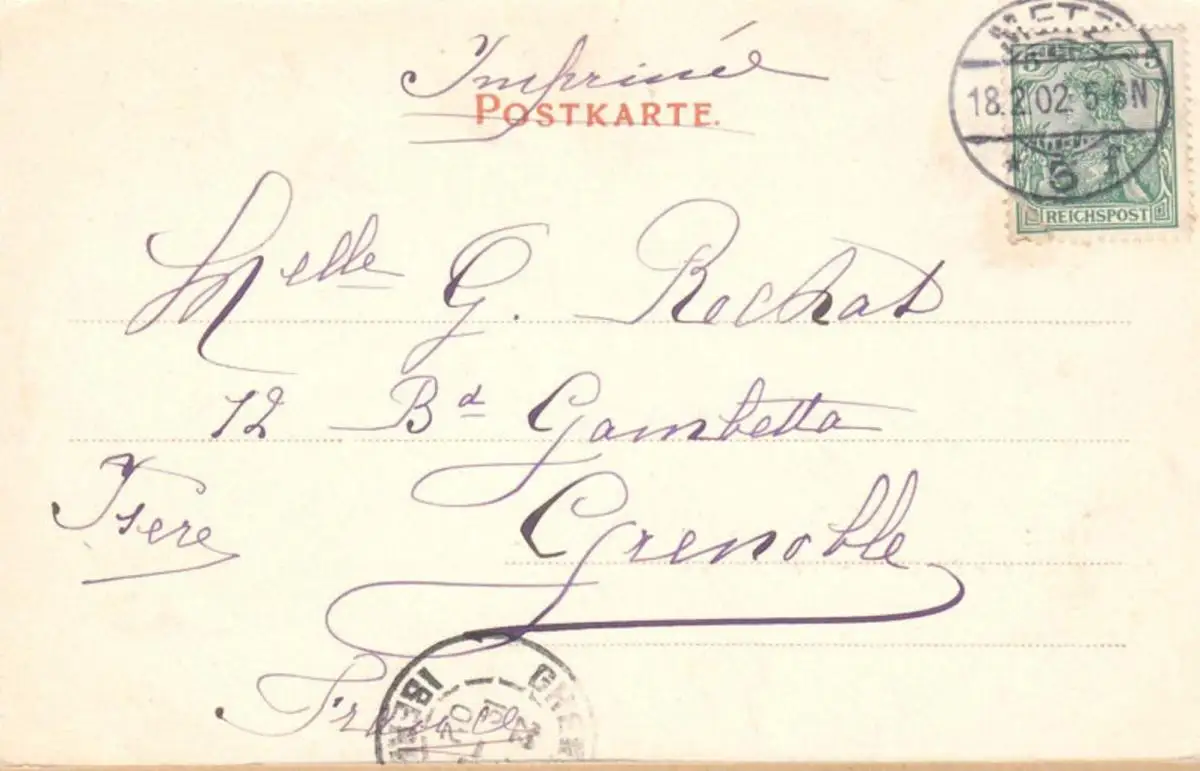 Imprimé
POSTKARTE.
METZ
5 5
18.2.02 5-6N
* 5
REICHSPOST
Melle G. Rochat
12 Bd Gambetta
Isere
Grenoble
France